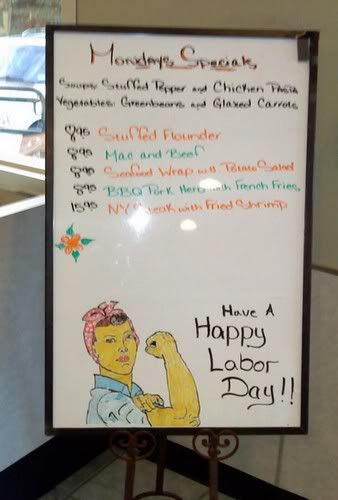 Mondays Specials
Soups: Stuffed Pepper and Chicken Pasta
Vegetables: Greenbeans and Glazed Carrots
8.95 Stuffed Flounder
8.95 Mac and Beef
8.95 Seafood Wrap with Potato Salad
8.95 BBQ Pork Hero with French Fries
15.95 NY Steak with Fried Shrimp
Have A
Happy
Labor
Day!!